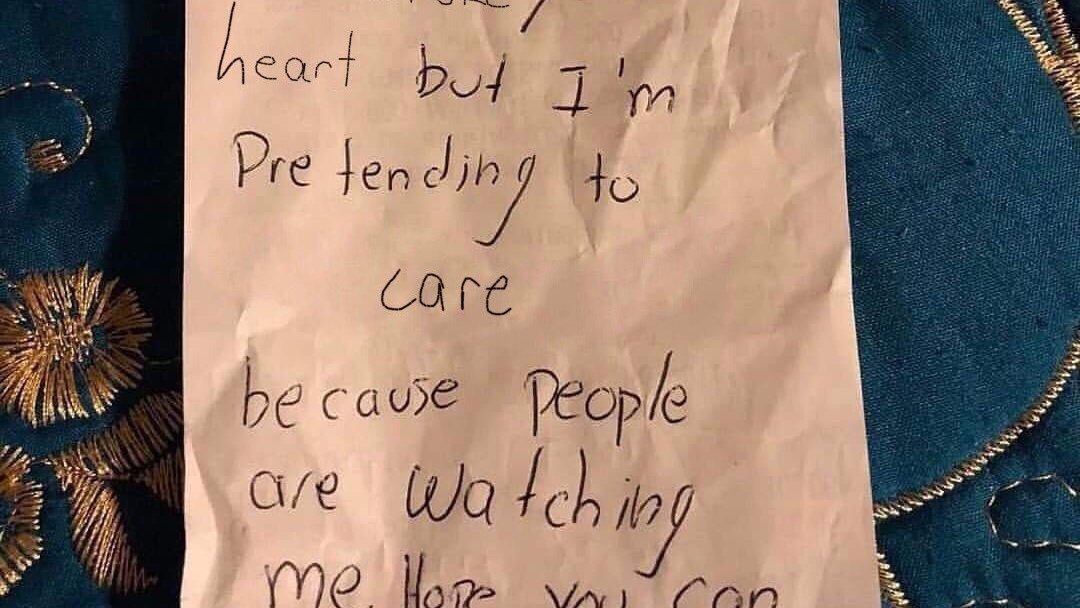 heart but I'm
Pretending to
care
because people
are watching
me. Hope you can